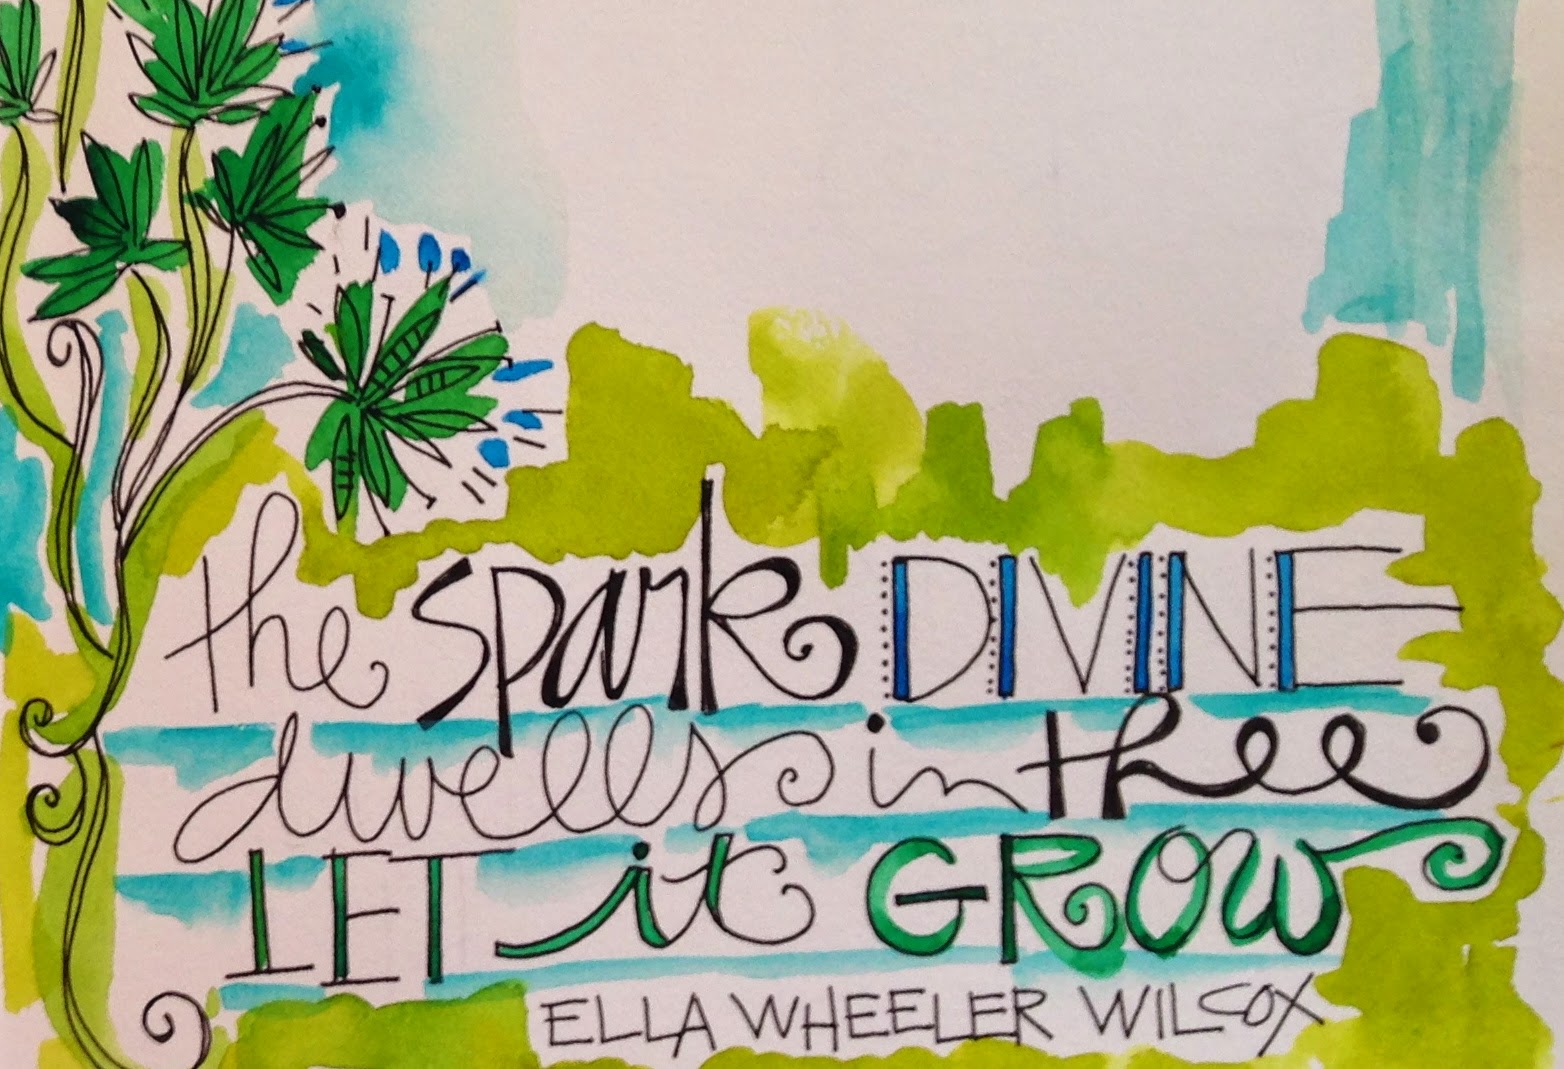 the spark DIVINE
dwells in thee
LET it GROW
ELLA WHEELER WILCOX